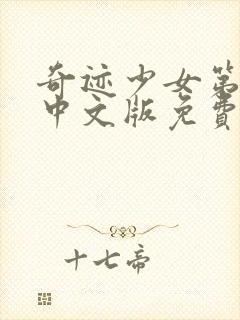 奇迹少女第
中文版免费
十七帝